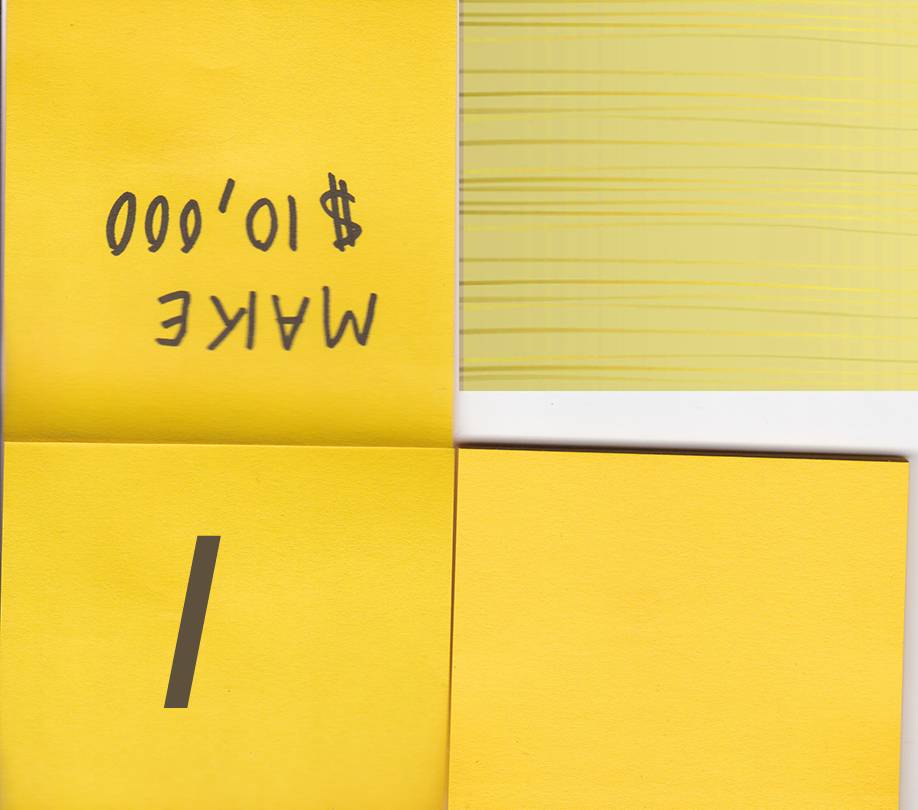 MAKE
$10,000
/